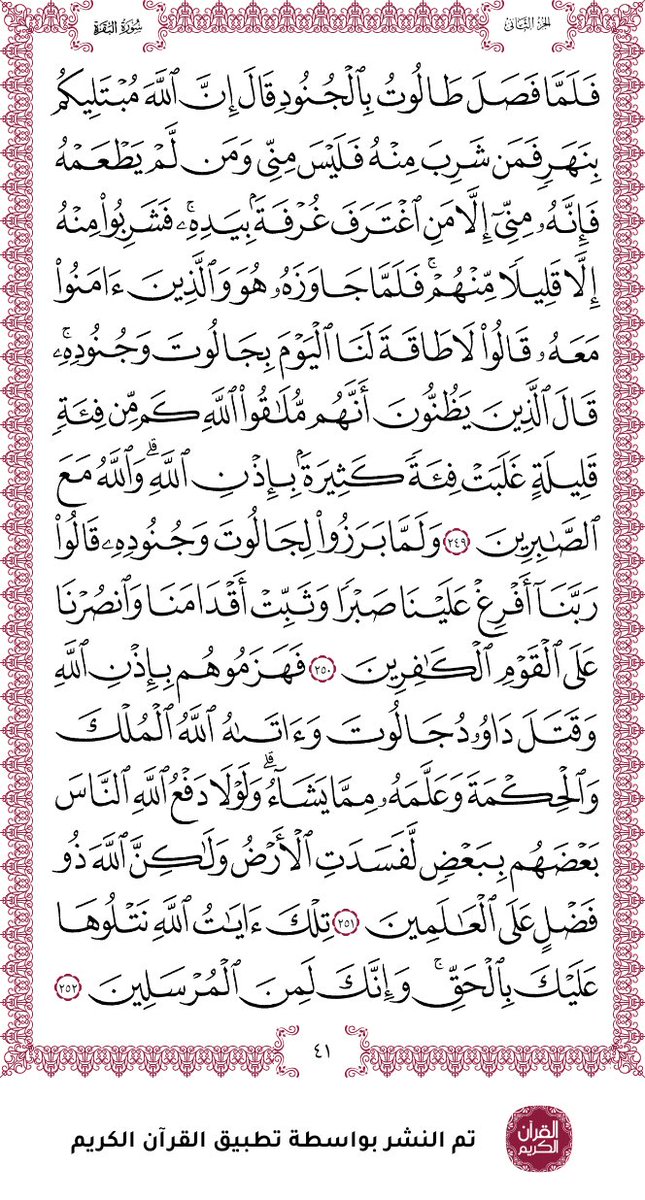 الجزء الثاني
سورة البقرة
فَلَمَّا فَصَلَ طَالُوتُ بِٱلْجُنُودِ قَالَ إِنَّ ٱللَّهَ مُبْتَلِيكُم
بِنَهَرٍ فَمَن شَرِبَ مِنْهُ فَلَيْسَ مِنِّي وَمَن لَّمْ يَطْعَمْهُ
فَإِنَّهُۥ مِنِّيٓ إِلَّا مَنِ ٱغْتَرَفَ غُرْفَةَۢ بِيَدِهِۦۚ فَشَرِبُوا۟ مِنْهُ
إِلَّا قَلِيلًا مِّنْهُمْۚ فَلَمَّا جَاوَزَهُۥ هُوَ وَٱلَّذِينَ ءَامَنُوا۟
مَعَهُۥ قَالُوا۟ لَا طَاقَةَ لَنَا ٱلْيَوْمَ بِجَالُوتَ وَجُنُودِهِۦۚ
قَالَ ٱلَّذِينَ يَظُنُّونَ أَنَّهُم مُّلَـٰقُوا۟ ٱللَّهِ كَم مِّن فِئَةٍ
قَلِيلَةٍ غَلَبَتْ فِئَةً كَثِيرَةَۢ بِإِذْنِ ٱللَّهِۗ وَٱللَّهُ مَعَ
ٱلصَّـٰبِرِينَ ٢٤٩ وَلَمَّا بَرَزُوا۟ لِجَالُوتَ وَجُنُودِهِۦ قَالُوا۟
رَبَّنَآ أَفْرِغْ عَلَيْنَا صَبْرًا وَثَبِّتْ أَقْدَامَنَا وَٱنصُرْنَا
عَلَى ٱلْقَوْمِ ٱلْكَـٰفِرِينَ ٢٥٠ فَهَزَمُوهُم بِإِذْنِ ٱللَّهِ
وَقَتَلَ دَاوُۥدُ جَالُوتَ وَءَاتَىٰهُ ٱللَّهُ ٱلْمُلْكَ
وَٱلْحِكْمَةَ وَعَلَّمَهُۥ مِمَّا يَشَآءُۗ وَلَوْلَا دَفْعُ ٱللَّهِ ٱلنَّاسَ
بَعْضَهُم بِبَعْضٍ لَّفَسَدَتِ ٱلْأَرْضُ وَلَـٰكِنَّ ٱللَّهَ ذُو
فَضْلٍ عَلَى ٱلْعَـٰلَمِينَ ٢٥١ تِلْكَ ءَايَـٰتُ ٱللَّهِ نَتْلُوهَا
عَلَيْكَ بِٱلْحَقِّۚ وَإِنَّكَ لَمِنَ ٱلْمُرْسَلِينَ ٢٥٢
٤١
القرآن الكريم
تم النشر بواسطة تطبيق القرآن الكريم